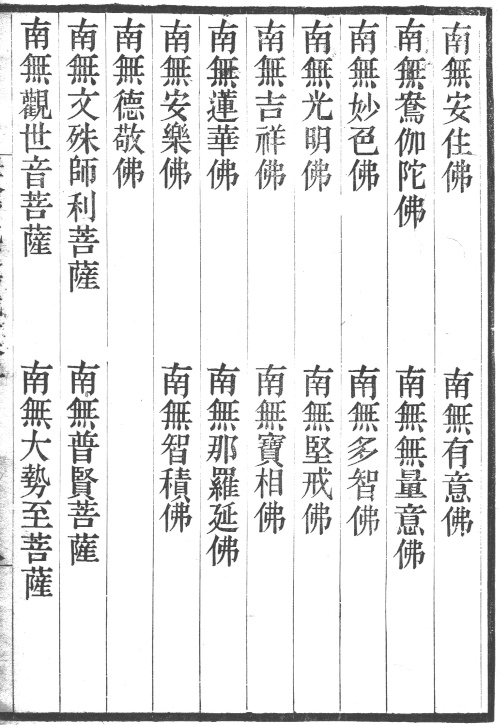 南無安住佛 南無有意佛
南無鴦伽陀佛 南無無量意佛
南無妙色佛 南無多智佛
南無光明佛 南無堅戒佛
南無吉祥佛 南無寶相佛
南無蓮華佛 南無那羅延佛
南無安樂佛 南無智積佛
南無德敬佛
南無文殊師利菩薩 南無普賢菩薩
南無觀世音菩薩 南無大勢至菩薩